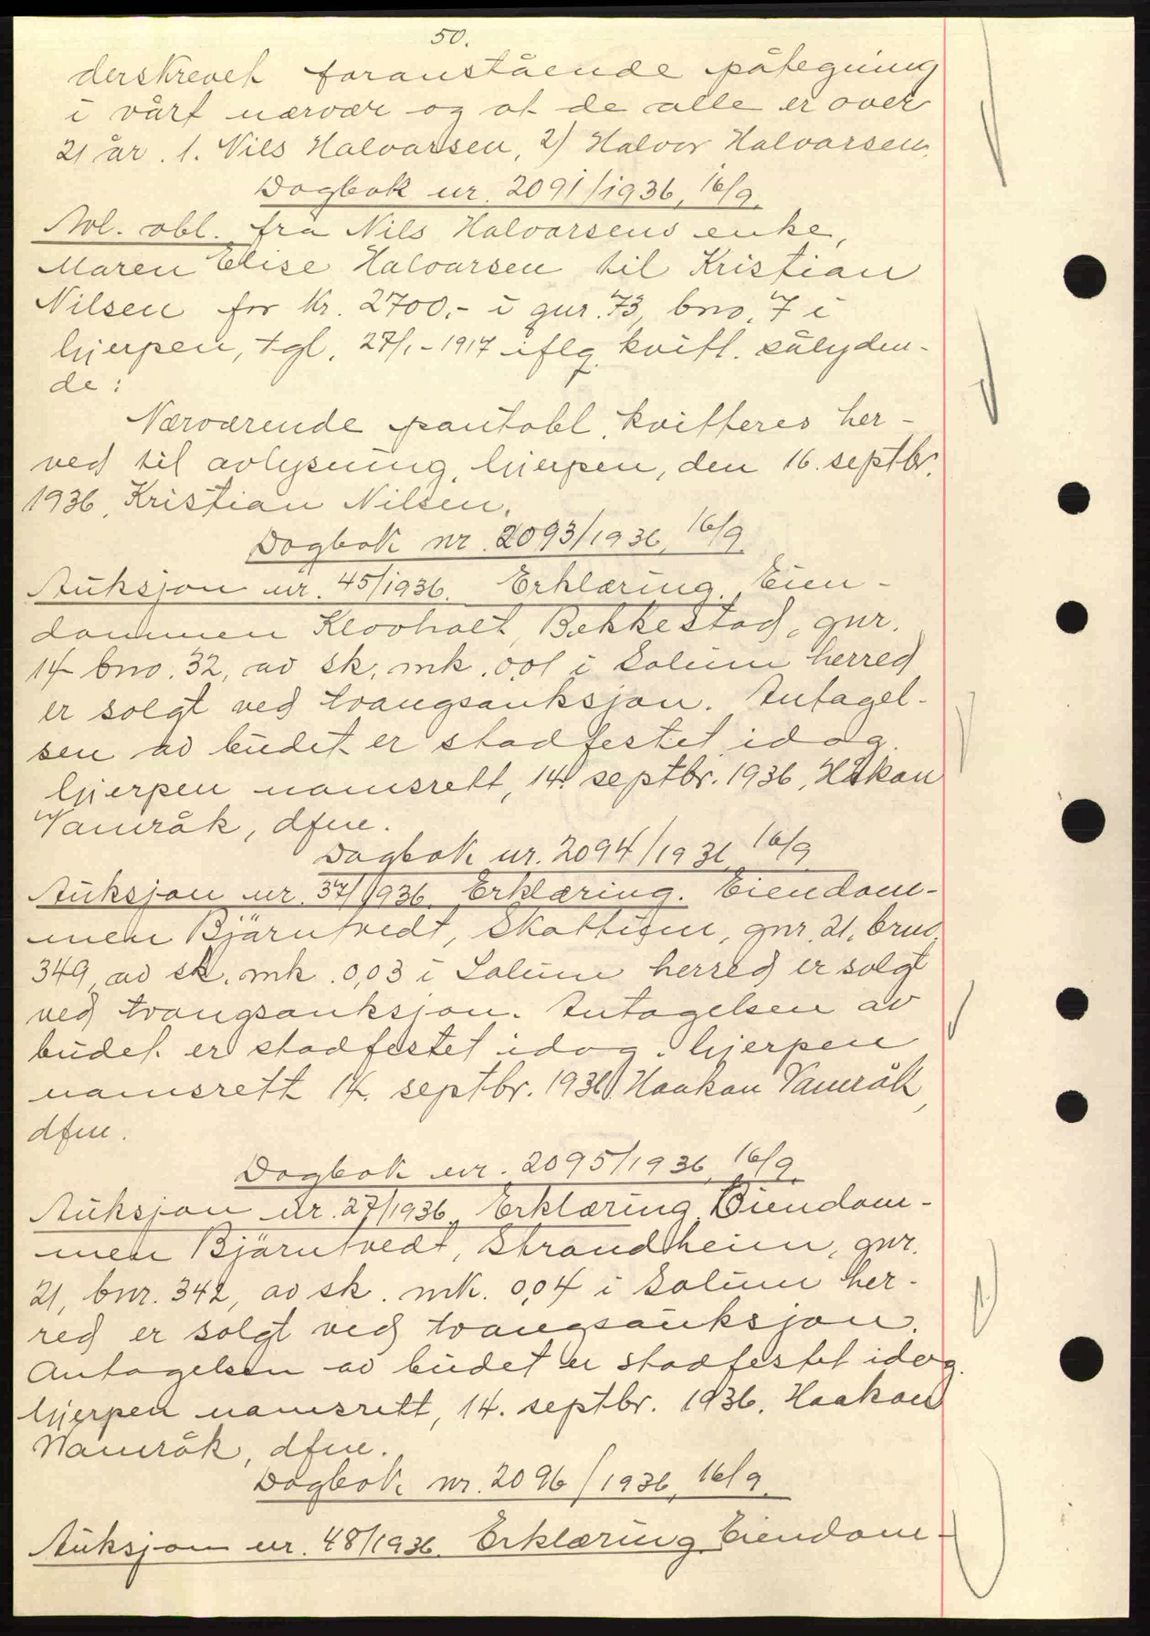 50.
derskrevet foranstående påtegning
i vårt nærvær og at de alle er over
21 år. 1. Nils Halvorsen, 2) Halvor Halvorsen.
Dagbok nr. 2091/1936, 16/9.
Avl. obl. fra Nils Halvorsens enke,
Maren Elise Halvorsen til Kristian
Nilsen for kr. 2700,- i gnr. 73, bno. 7 i
Gjerpen, tgl. 27/1-1917 iflg. kvitt. sålyden-
de:
Nærværende pantobl. kvitteres her-
ved til avlysning. Gjerpen, den 16. septbr.
1936, Kristian Nilsen.
Dagbok nr. 2093/1936, 16/9.
Auksjon nr. 45/1936. Erklæring. Eien-
dommen Klovholt, Bekkestad, gnr.
14 bno. 32, av sk. mk. 0,01 i Solum herred
er solgt ved tvangsauksjon. Antagel-
sen av budet er stadfestet idag.
Gjerpen namsrett, 14. septbr. 1936, Håkon
Vamråk, dfm.
Dagbok nr. 2094/1936, 16/9
Auksjon nr. 37/1936. Erklæring. Eiendom-
men Bjärntvedt, Skottum, gnr. 21, bruo.
349, av sk. mk. 0,03 i Solum herred er solgt
ved tvangsauksjon. Antagelsen av
budet er stadfestet idag. Gjerpen
namsrett 14. septbr. 1936. Haakon Vamråk,
dfm.
Dagbok nr. 2095/1936, 16/9.
Auksjon nr. 27/1936. Erklæring. Eiendom-
men Bjärntvedt, Strandheim, gnr.
21, bnr. 342, av sk. mk. 0,04 i Solum her-
red er solgt ved tvangsauksjon.
Antagelsen av budet er stadfestet idag.
Gjerpen namsrett, 14. septbr. 1936. Haakon
Vamråk, dfm.
Dagbok nr. 2096/1936, 16/9.
Auksjon nr. 48/1936. Erklæring. Eiendom-